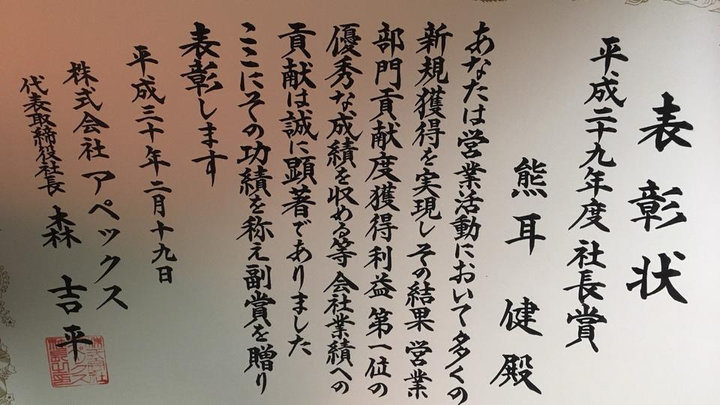 表彰状
平成二十九年度 社長賞
熊耳 健殿
あなたは営業活動において多くの
新規獲得を実現し その結果 営業
部門貢献度獲得利益 第一位の
優秀な成績を収める等 会社業績への
貢献は誠に顕著でありました
ここにその功績を称え副賞を贈り
表彰します
平成三十年二月十九日
株式会社 アペックス
代表取締役社長 森 吉平